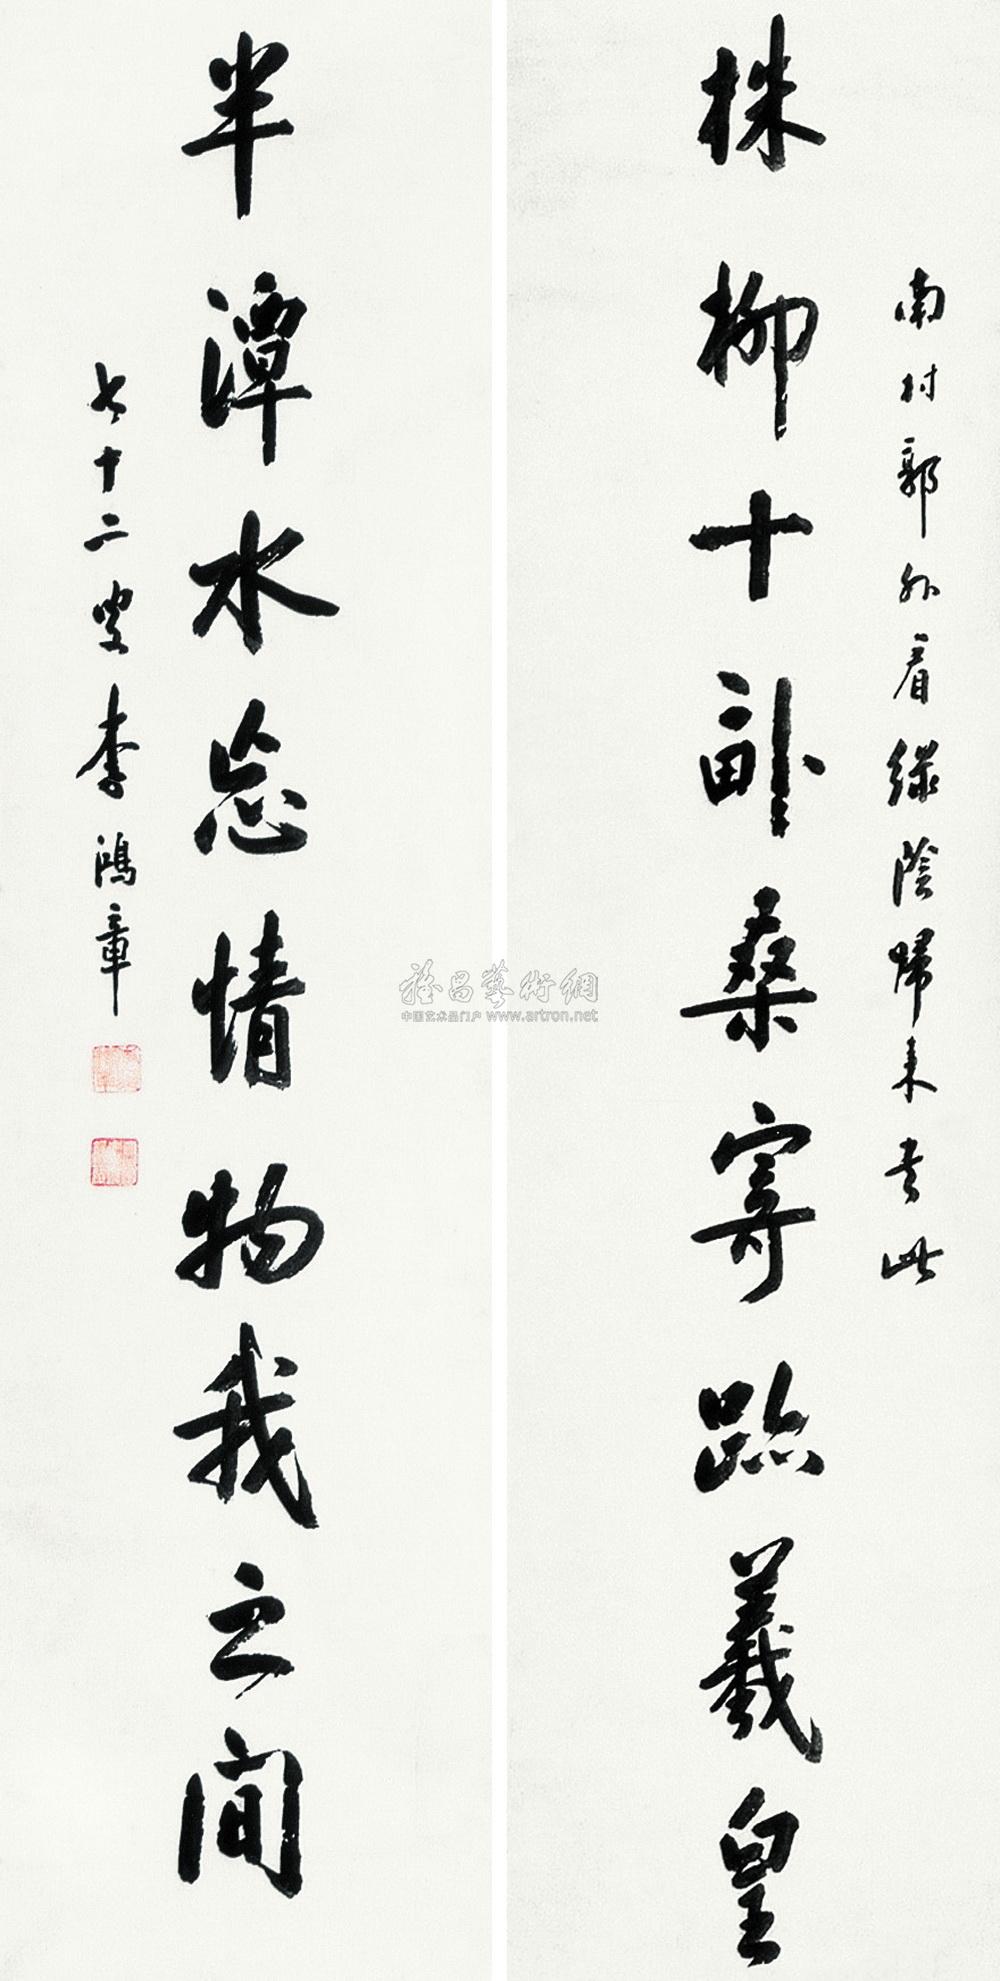 南村郭外看綠陰歸來書此
株柳十畝桑寄跡羲皇
半潭水忘情物我之間
七十二叟李鴻章
雅昌藝術網
中国艺术品门户 www.artron.net